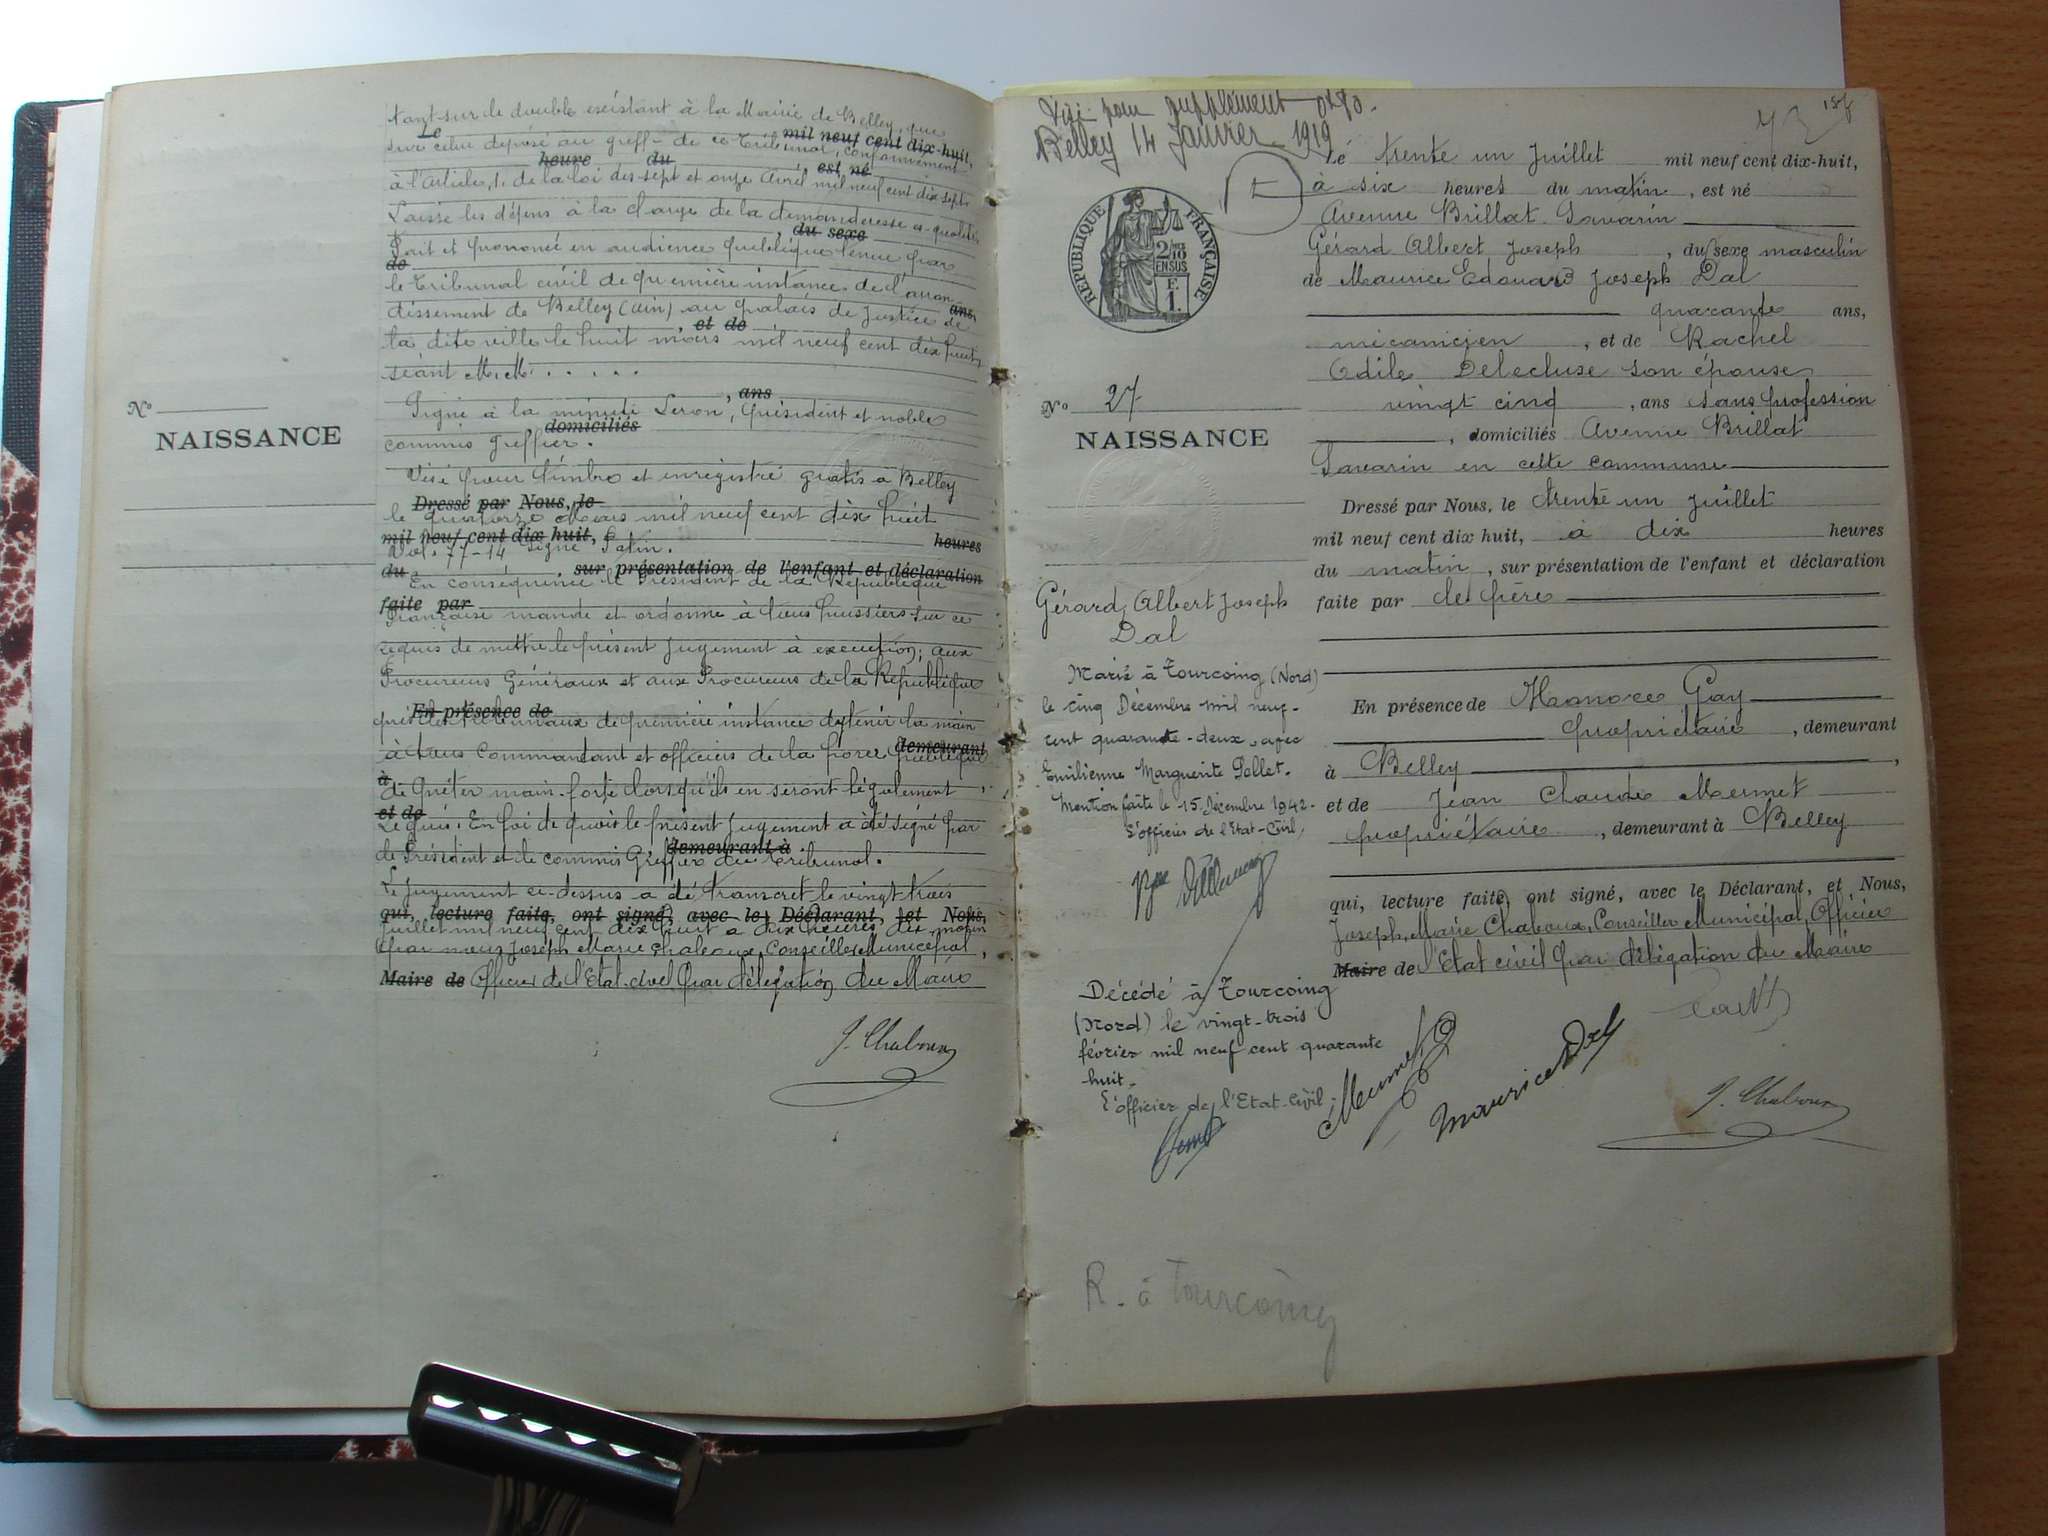 tant sur le double existant à la Mairie de Belley, que
Le mil neuf cent dix-huit,
sur celui déposé au greffe de ce Tribunal, conformément
heure du , est né
à l'Article, 1. de la loi des sept et onze Avril mil neuf cent dix sept.
Laisse les dépens à la charge de la demanderesse es-qualités
, du sexe
Fait et prononcé en audience publique tenue par
de
le Tribunal civil de première instance de l'arron-
ans,
dissement de Belley (ain) au palais de justice de
, et de
la dite ville le huit mars mil neuf cent dix huit,
séant M.M. . . . . .
, ans
Signé à la minute Seron, président et noble
domiciliés
commis greffier.
Visé pour timbre et enregistré gratis à Belley
Dressé par Nous, le
le quatorze Mars mil neuf cent dix huit
mil neuf cent dix huit, heures
77-14 Signé
du , sur présentation de l'enfant et déclaration
En conséquence le Président de la République
faite par
Française mande et ordonne à tous huissiers sur ce
requis de mettre le présent jugement à execution; aux
Procureurs Généraux et aux Procureurs de la République
En présence de
près les Tribunaux de première instance d'y tenir la main
à tous Commandant et officiers de la force publique
demeurant
à
de prêter main-forte lorsqu'ils en seront légalement
et de
requis. En foi de quoi le présent jugement a été signé par
demeurant à
le Président et le commis Greffier du Tribunal.
Le jugement ci-dessus a été transcrit le vingt trois
qui, lecture faite, ont signé, avec le Déclarant, et Nous,
juillet mil neuf cent dix huit à dix heures du matin
par nous Joseph Marie Chaboux, Conseiller Municipal,
Maire de Officier de l'Etat-civil par délégation du Maire
J. Chaboux
No
NAISSANCE
Visé pour supplément 0f80.
Belley 14 Janvier 1919
158
RÉPUBLIQUE FRANÇAISE
2/10 EN SUS
F.
1.
No 27
NAISSANCE
Gérard, Albert Joseph
Dal
Marié à Tourcoing (Nord)
le cinq Décembre mil neuf-
cent quarante-deux, avec
Emilienne Marguerite Pollet.
Mention faite le 15 Décembre 1942-
L'officier de l'Etat-Civil,
Décédé à Tourcoing
(Nord) le vingt-trois
février mil neuf cent quarante
huit.
L'officier de l'Etat-Civil.
R. à Tourcoing
Le trente un Juillet mil neuf cent dix-huit,
à six heures du matin, est né
Avenue Brillat Savarin
Gérard Albert Joseph, du sexe masculin
de Maurice Edouard Joseph Dal
quarante ans,
mécanicien, et de Rachel
Odile Delecluse son épouse
vingt cinq, ans sans profession
, domiciliés Avenue Brillat
Savarin en cette commune
Dressé par Nous, le trente un Juillet
mil neuf cent dix huit, à dix heures
du matin, sur présentation de l'enfant et déclaration
faite par le père
En présence de Honoré Gay
propriétaire, demeurant
à Belley,
et de Jean Claude Mermet
propriétaire, demeurant à Belley
qui, lecture faite, ont signé, avec le Déclarant, et Nous,
Joseph, Marie Chaboux, Conseiller Municipal, Officier
Maire de l'Etat civil par délégation du Maire
Mermet
Maurice Dal
J. Chaboux